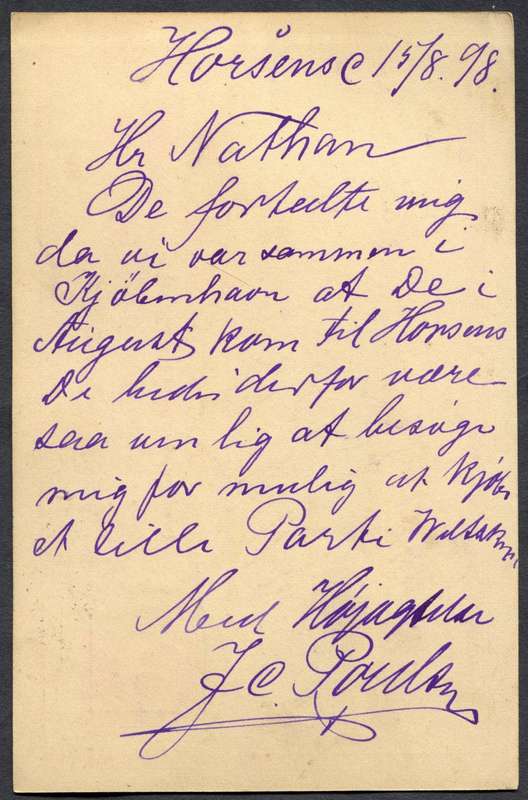 Horsens C 15/8. 98.
Hr Nathan
De fortalte mig
da vi var sammen i
Kjöbenhavn at De i
August kom til Horsens
De bedes derfor være
saa venlig at besøge
mig for mulig at kjøbe
et lille Parti
Med Højagtelse
J C Poulsen